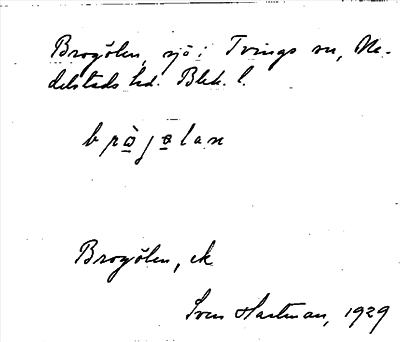 Brogölen, sjö i Tvings sn, Me-
delstads hd. Blek. l.
brò̲jə̲lan
Brogölen, ek
Sven Hartman, 1929